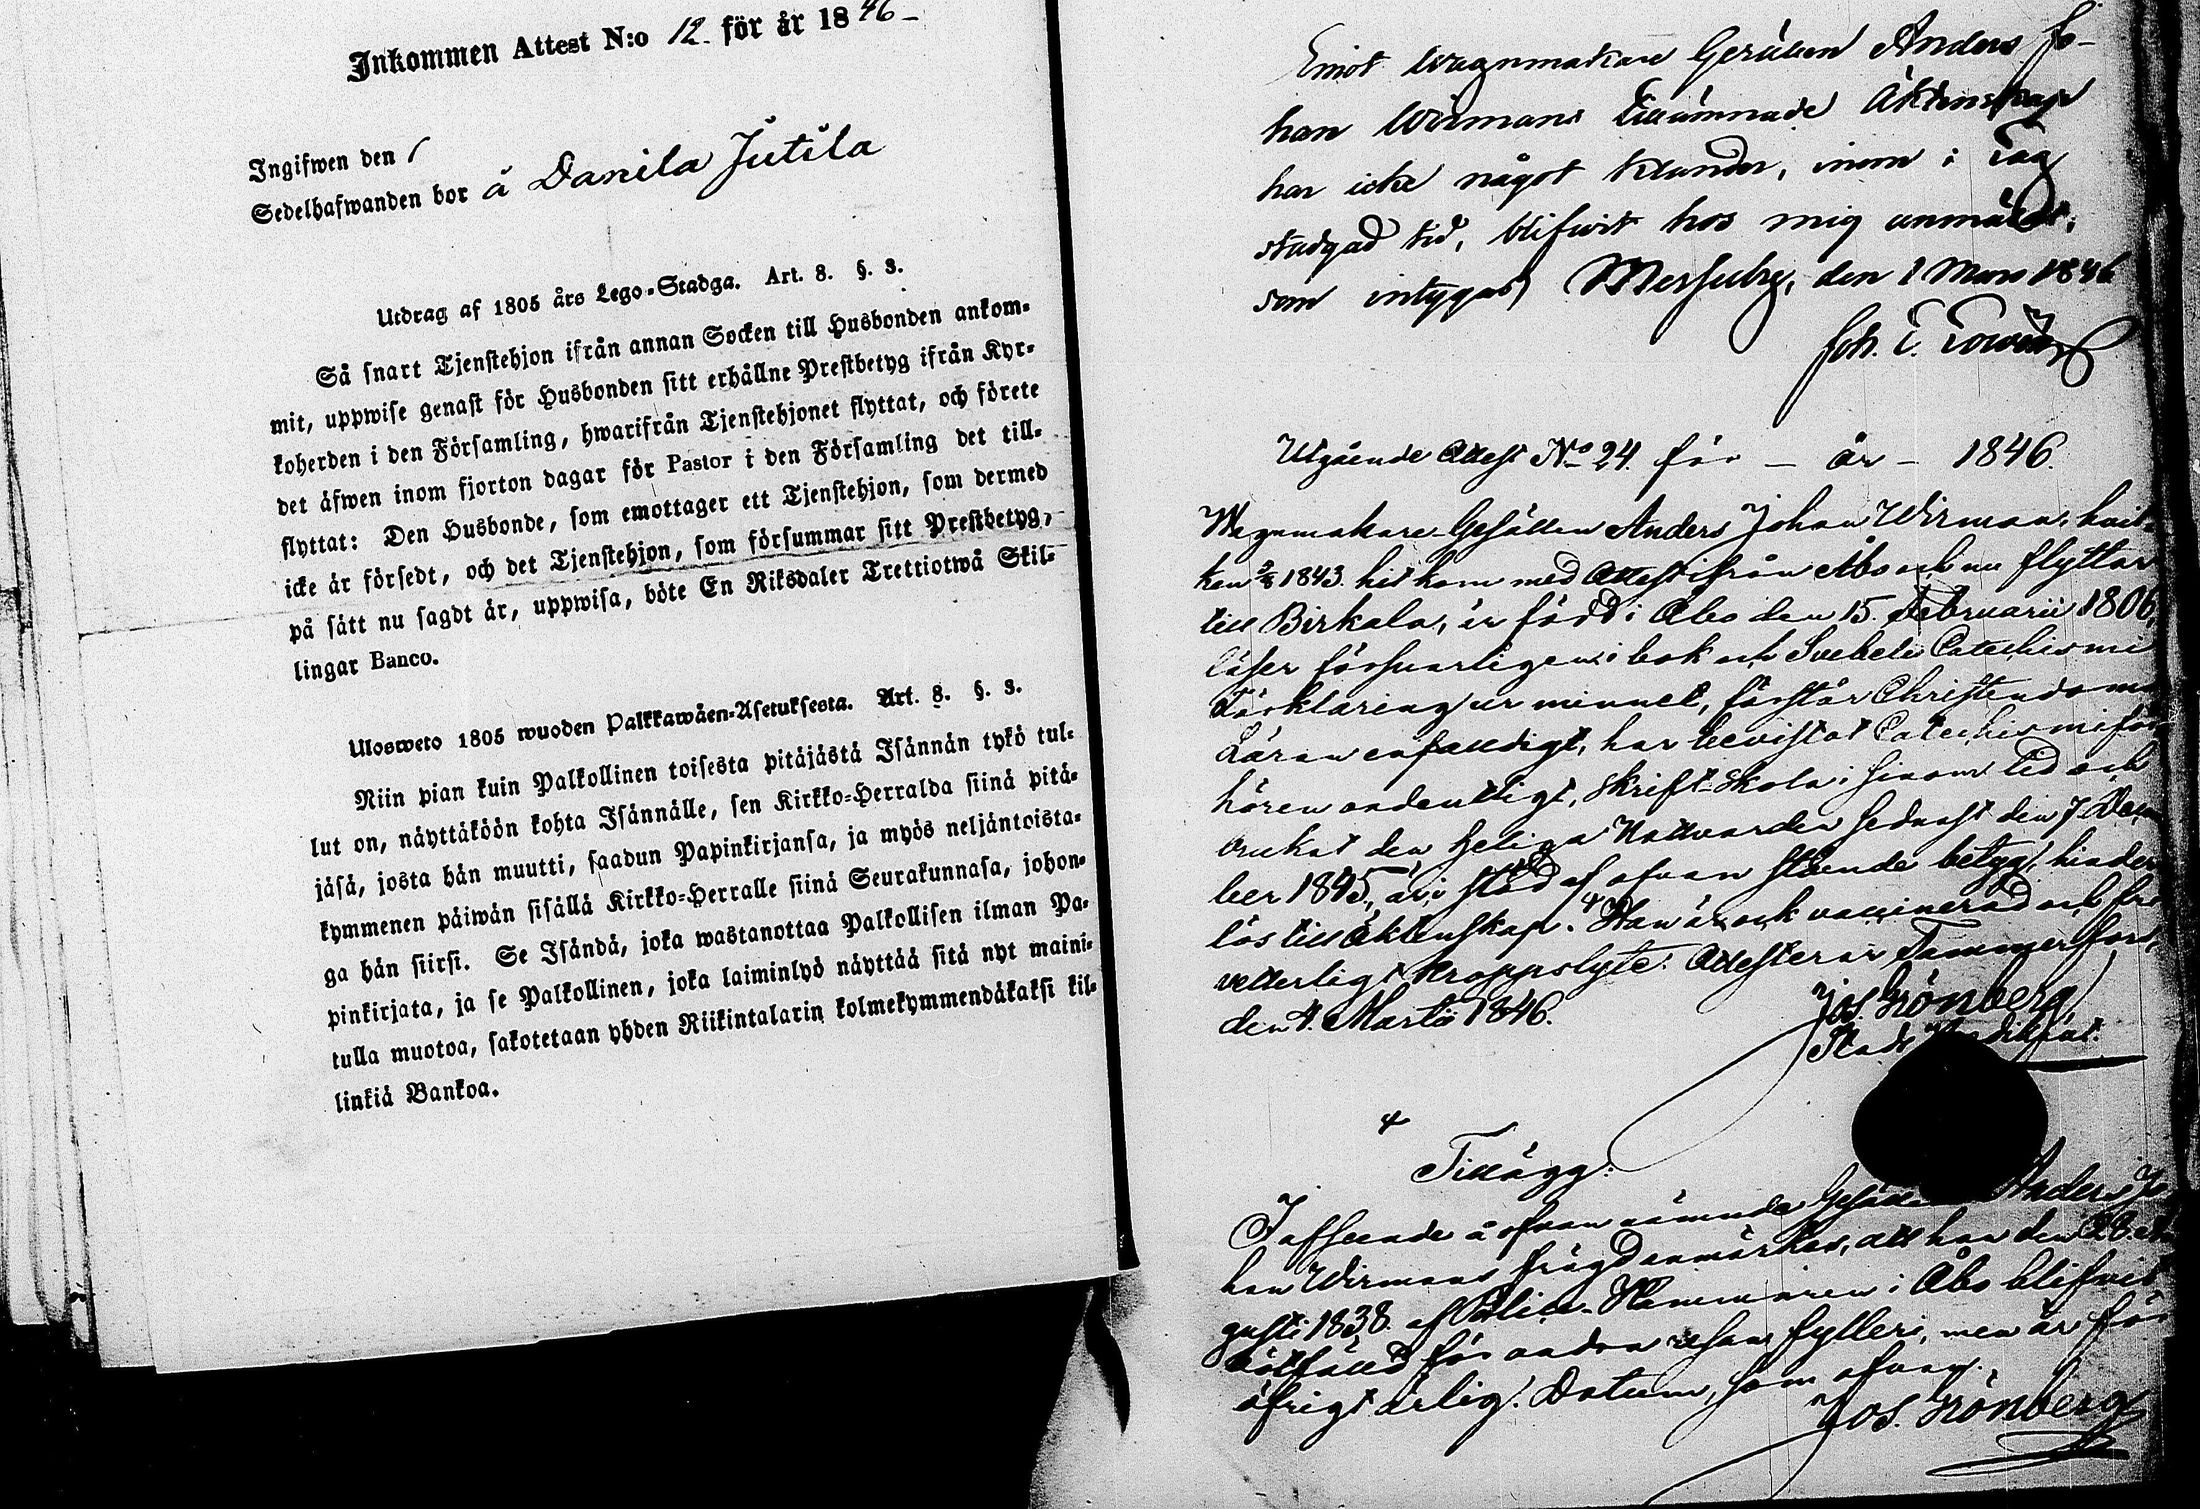 Inkommen Attest N:o 12. för år 1846
Ingifwen den 1
Sedelhafwanden bor å Danila Jutila
Utdrag af 1805 års Lego-Stadga. Art. 8. §. 3.
Så snart Tjenstehjon ifrån annan Socken till Husbonden ankom-
mit, uppwise genast för Husbonden sitt erhållne Prestbetyg ifrån Kyr-
koherden i den Församling, hwarifrån Tjenstehjonet flyttat, och förete
det äfwen inom fjorton dagar för Pastor i den Församling det till-
flyttat: Den Husbonde, som emottager ett Tjenstehjon, som dermed
icke är försedt, och det Tjenstehjon, som försummar sitt Prestbetyg,
på sätt nu sagdt är, uppwisa, böte En Riksdaler Trettiotwå Skil-
lingar Banco.
Ulosweto 1805 wuoden Palkkawäen-Asetuksesta. Art. 8. §. 3.
Niin pian kuin Palkollinen toisesta pitäjästä Isännän tykö tul-
lut on, näyttäköön kohta Isännälle, sen Kirkko-Herralda siinä pitä-
jäsä, josta hän muutti, saadun Papinkirjansa, ja myös neljäntoista-
kymmenen päiwän sisällä Kirkko-Herralle siinä Seurakunnasa, johon-
ga hän siirsi. Se Isändä, joka wastanottaa Palkollisen ilman Pa-
pinkirjata, ja se Palkollinen, joka laiminlyö näyttää sitä nyt maini-
tulla muotoa, sakotetaan yhden Riikintalarin kolmekymmendäkaksi kil-
linkiä Bankoa.
Emot Wagnmakare Gesällen Anders Jo-
han Wirmans tillämnade Äktenskap
har icke något klander, inom i Lag
stadgad tid, blifwit hos mig anmäldt;
som intygas, den 1 Mars 1846
Joh.
Utgående Attest No 24. för - år - 1846.
Wagnmakare-Gesällen Anders Johan Wirman, hvil-
ken 1843. hit kom med Attest ifrån Åbo och nu flyttar
till Birkala, är född i Åbo den 15. Februarii 1806,
läser försvarligen i bok och Svebelii Catechismi
Förklaring ur minnet, förstår Christendoms
Läran enfaldigt, har bevistat Catechismiför-
hören ordentligt, Skrift-Skola i sinom tid och
brukat den Heliga Nattvarden sednast den 7. Decem
ber 1845, är, i stöd af ofvan stående betyg, hinder-
lös till Äktenskap. + Han är ock vaccinerad och frå
vetterligt kroppslyte. Attesterar Tammerfors,
den 4. Martii 1846.
Jos. Grönberg,
Stads
+
Tillägg:
I afseende å ofvan nämnde Gesällen Anders Jo
han Wirmans frägd anmärkes, att han den 28. Au
gusti 1838. af Police-Kammaren i Åbo blifvit
bötfälld för andra resans fylleri, men är för
öfrigt ärlig. Datum, som ofvan.
Jos. Grönberg